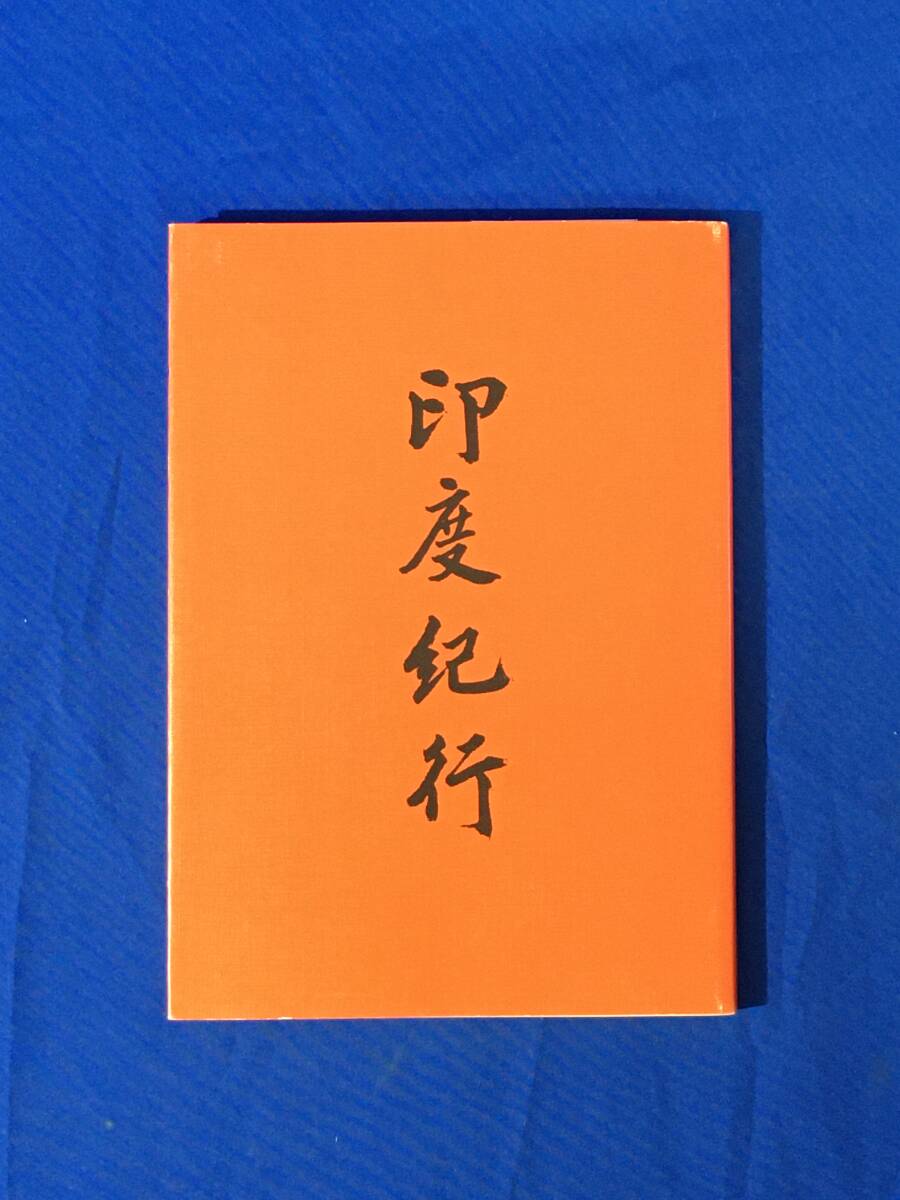 印度紀行